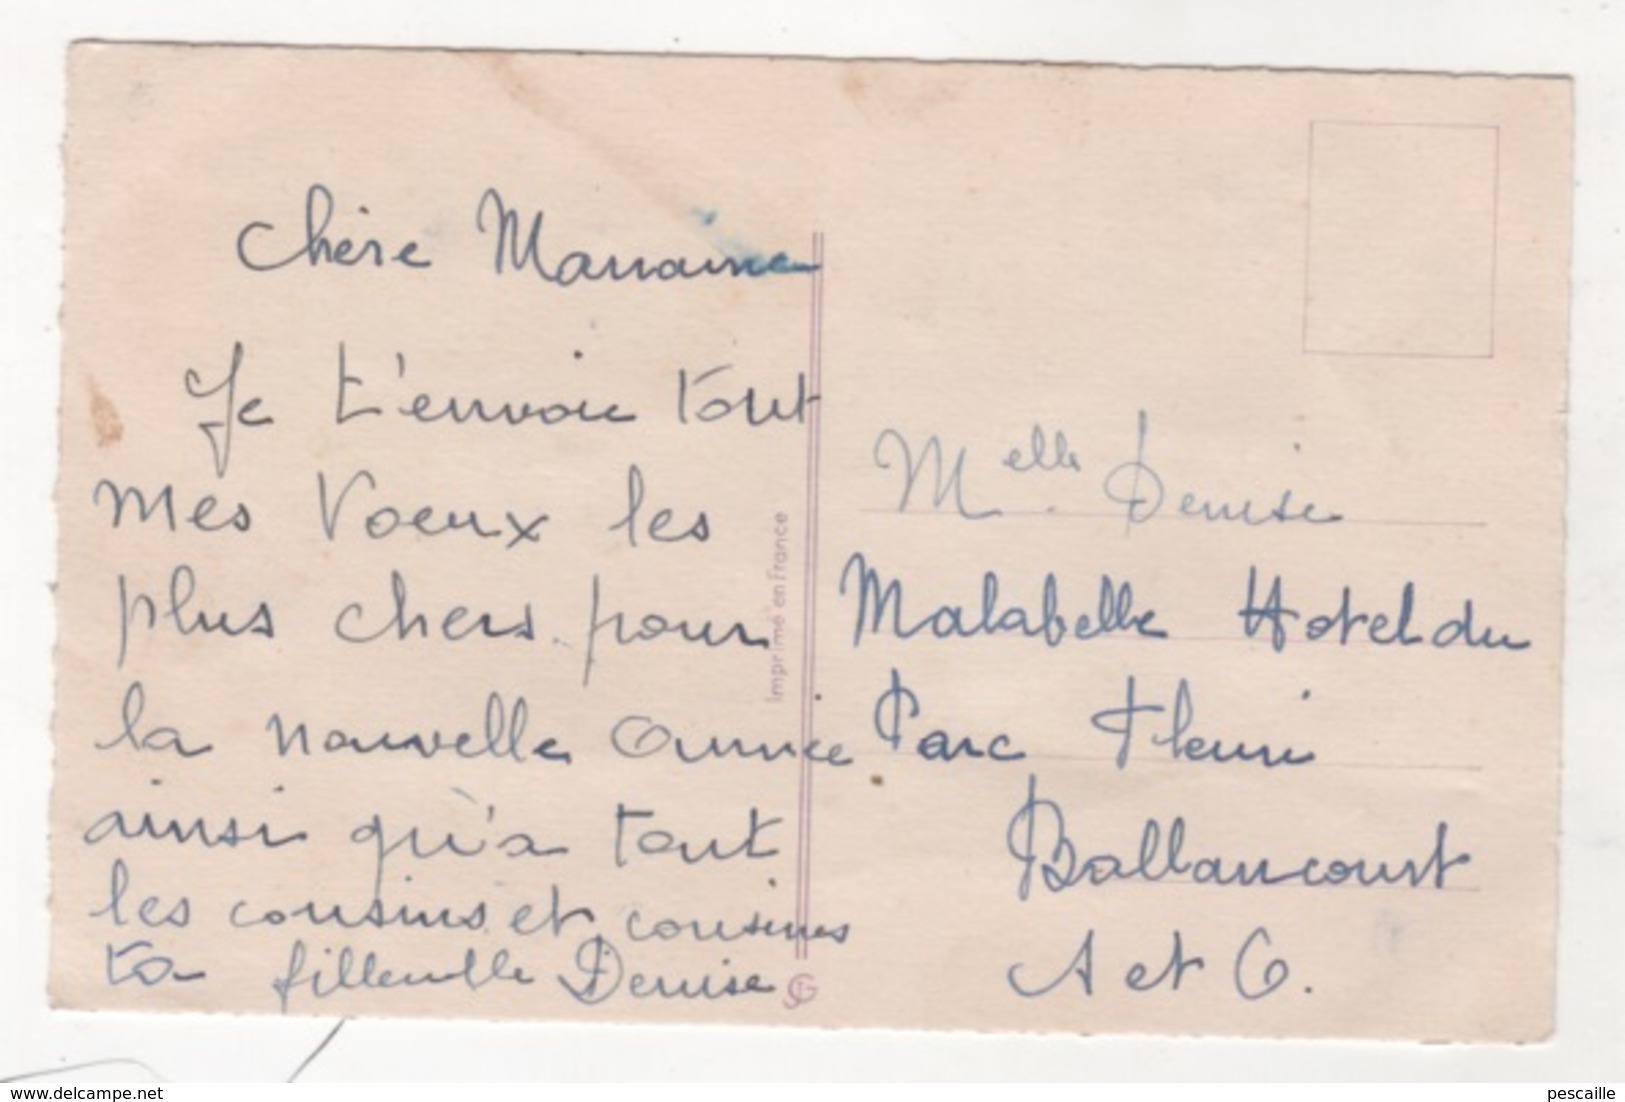 Chère Marraine
Je t'envoie tout
mes Voeux les
plus chers pour
la nouvelle année
ainsi qu'a tout
les cousins et cousines
ta filleulle Denise
Imprimé en France
Melle Denise
Malabelle Hotel du
Parc Fleuri
Ballancourt
A et O.
www.delcampe.net
pescaille